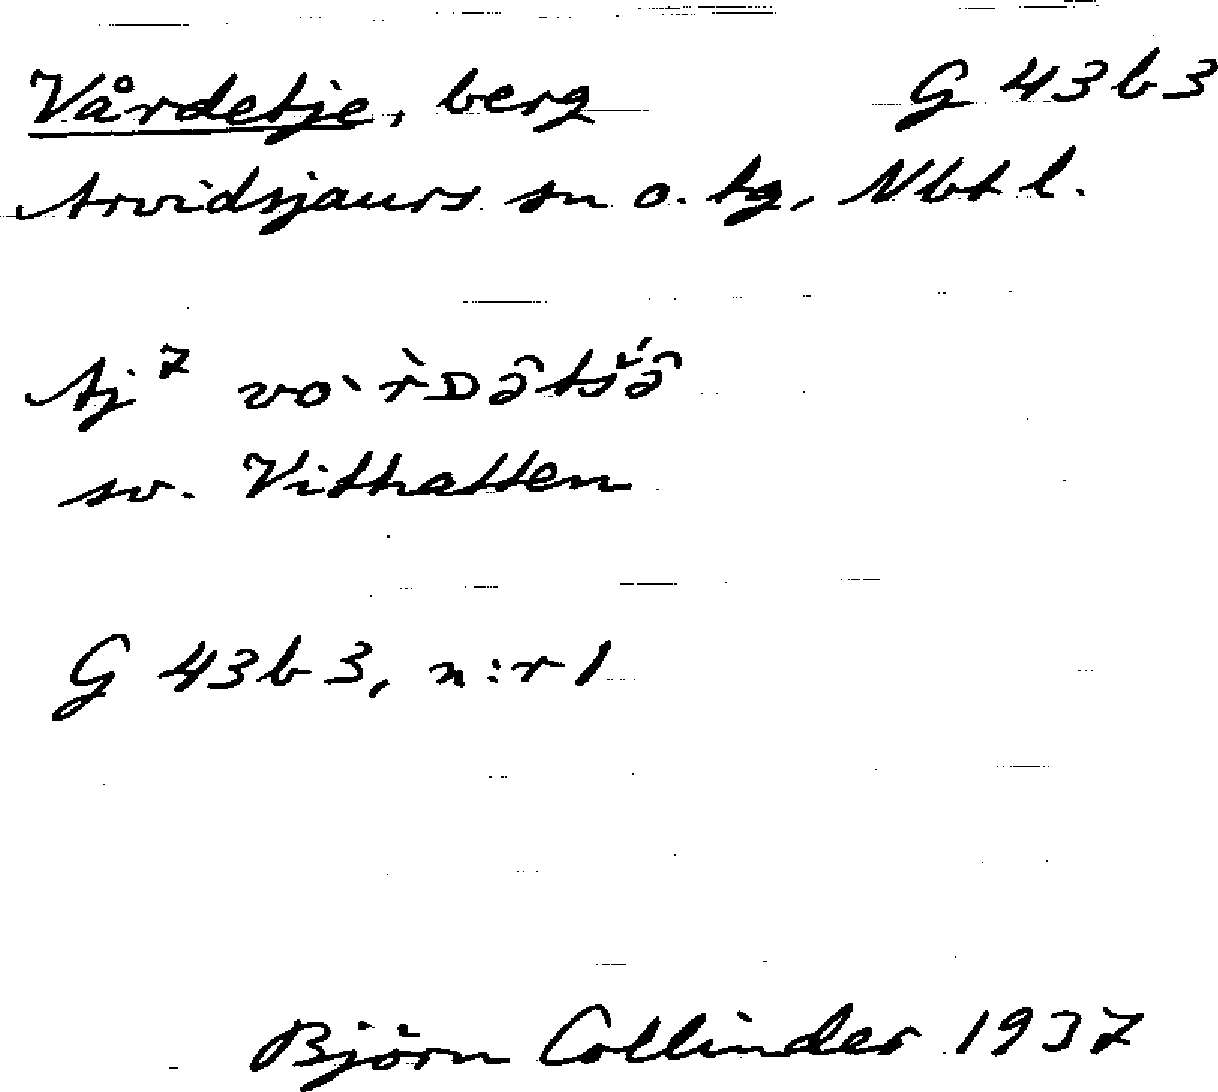 Vårdetje, berg G 43 b 3
Arvidsjaurs sn o. tg, Nbt l.
Aj 7 vo`r̀Də̑tš́ə̑
sv. Vithatten
G 43 b 3, n:r 1
Björn Collinder 1937